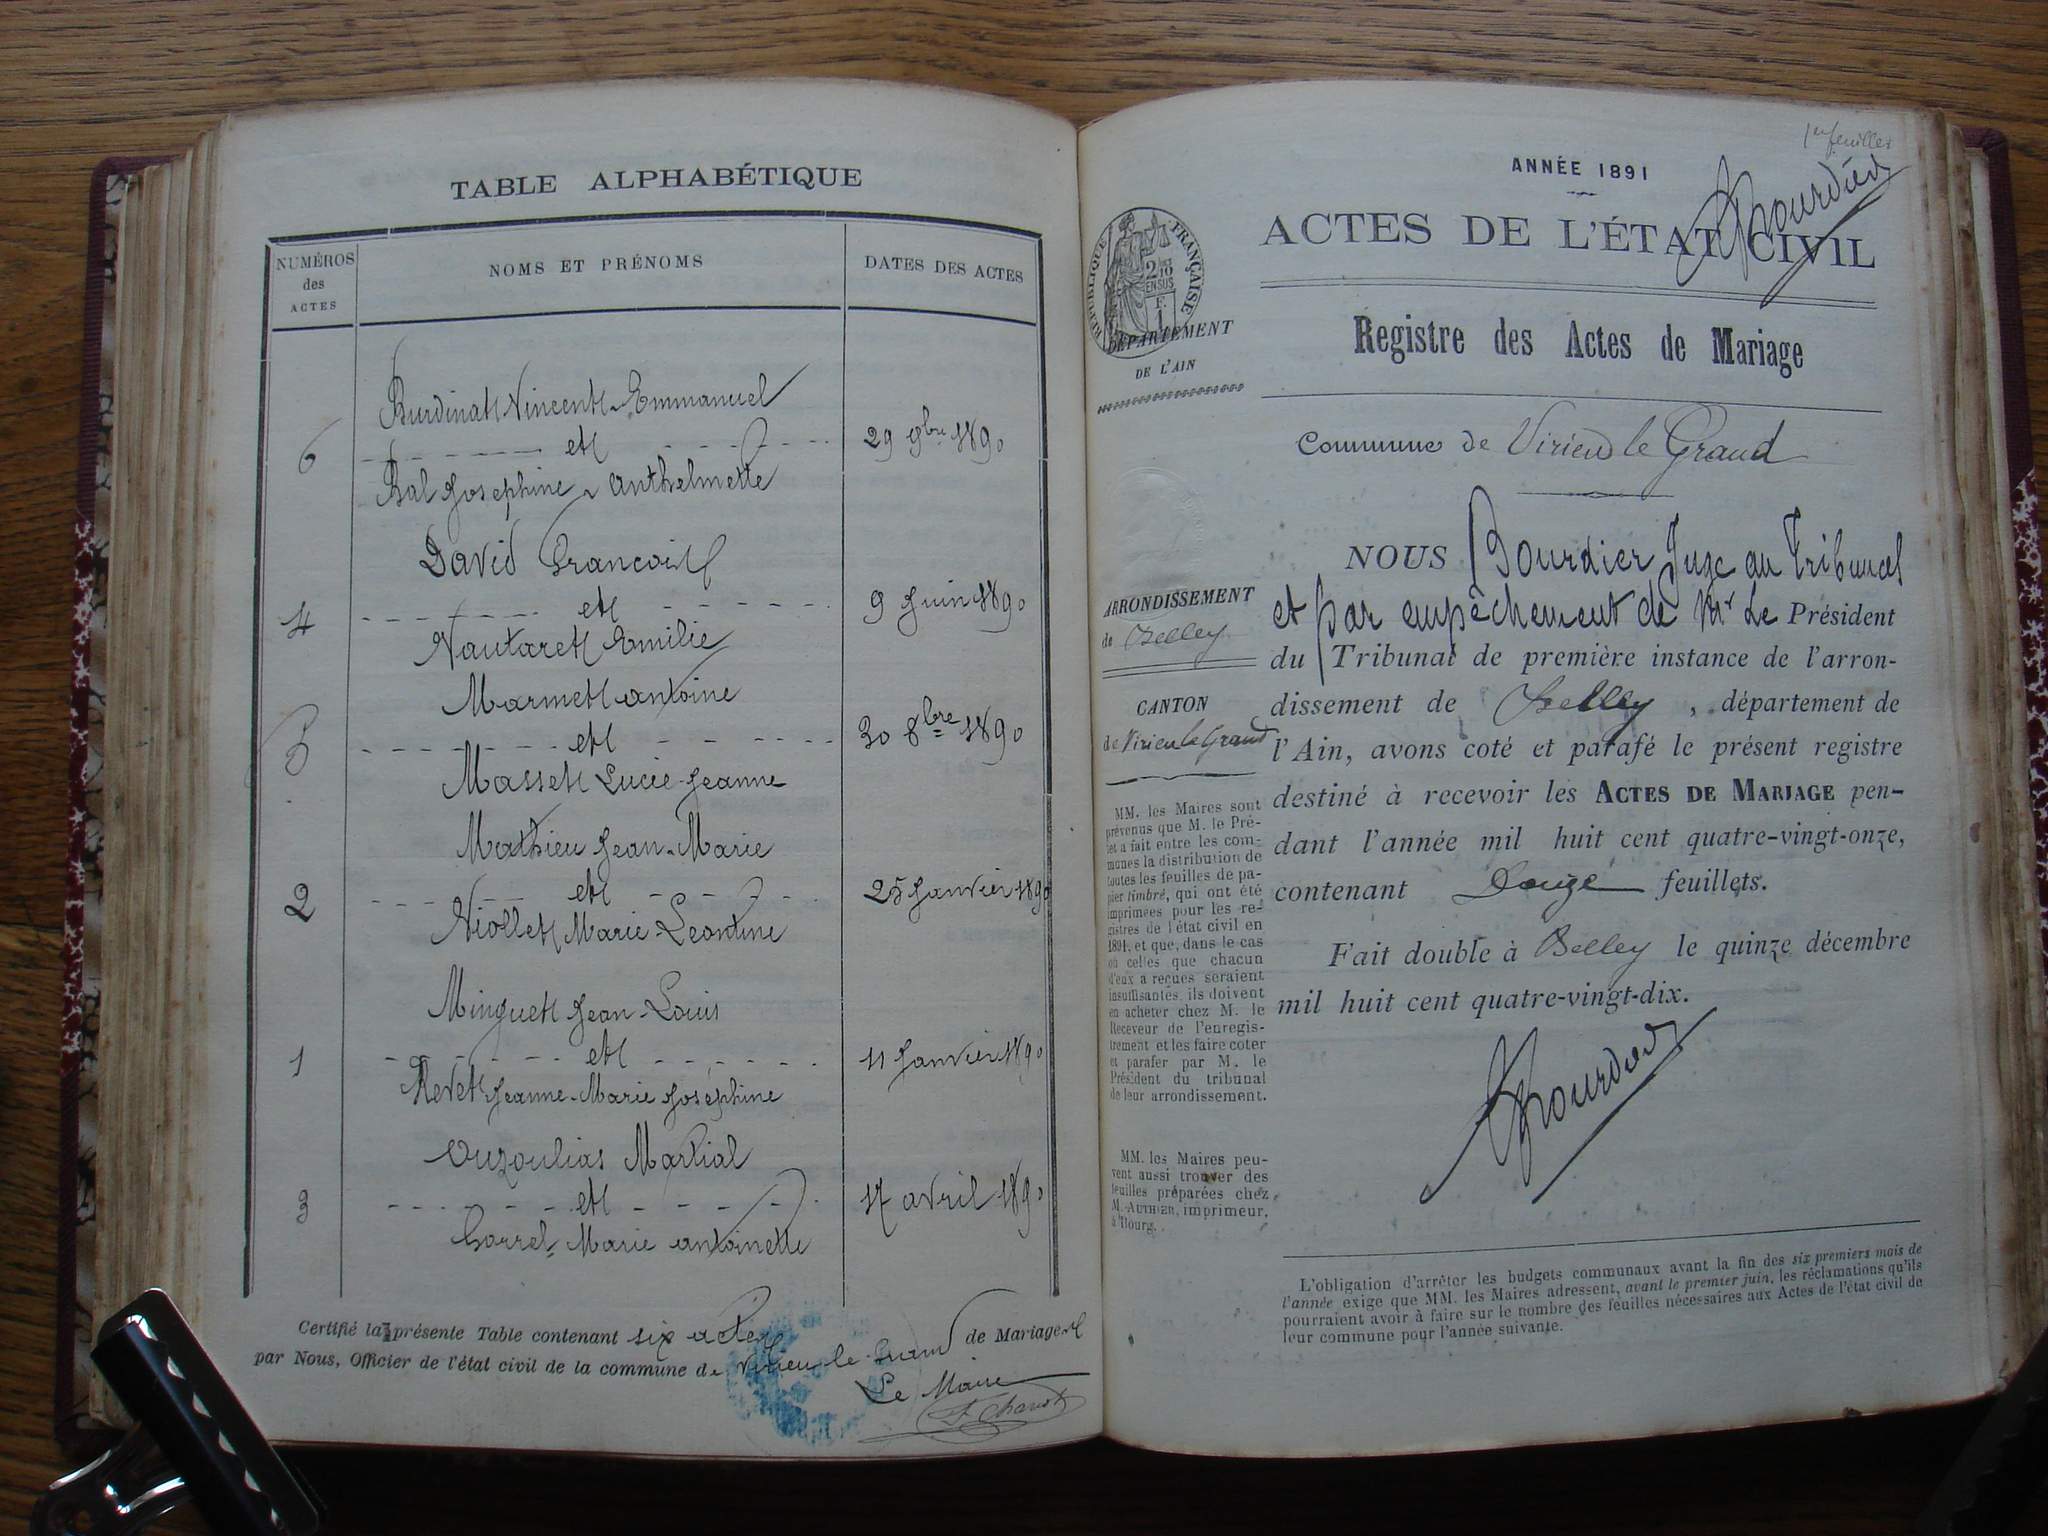 TABLE ALPHABÉTIQUE
NUMÉROS
des
ACTES
NOMS ET PRÉNOMS
DATES DES ACTES
Burdinat Vincent Emmanuel
6 et 29 9bre 1890
Bal Josephine Anthelmette
David François
4 et 9 Juin 1890
Nautaret Emilie
Marmet antoine
5 et 30 8bre 1890
Masset Lucie Jeanne
Mathieu Jean-Marie
2 et 25 Janvier 1890
Niollet Marie Leontine
Minguet Jean-Louis
1 et 11 Janvier 1890
Revet Jeanne-Marie Joséphine
Ouzoulias Martial
3 et 17 avril 1890
Borrel Marie antoinette
Certifié la présente Table contenant six actes de Mariage
par Nous, Officier de l'état civil de la commune de Virieu-le-Grand
Le Maire
1er feuillet
ANNÉE 1891
Bourdier
ACTES DE L'ÉTAT CIVIL
RÉPUBLIQUE FRANÇAISE
DÉPARTEMENT
DE L'AIN
Registre des Actes de Mariage
Commune de Virieu le Grand
ARRONDISSEMENT
de Belley
CANTON
de Virieu le Grand
MM. les Maires sont
prévenus que M. le Pré-
fet a fait entre les com-
munes la distribution de
toutes les feuilles de pa-
pier timbré, qui ont été
imprimées pour les re-
gistres de l'état civil en
1891, et que, dans le cas
où celles que chacun
d'eux a reçues seraient
insuffisantes, ils doivent
en acheter chez M. le
Receveur de l'enregis-
trement et les faire coter
et parafer par M. le
Président du tribunal
de leur arrondissement.
MM. les Maires peu-
vent aussi trouver des
feuilles préparées chez
M. AUTHIER, imprimeur,
à Bourg.
NOUS Bourdier Juge au Tribunal
et par empêchement de Mr Le Président
du Tribunal de première instance de l'arron-
dissement de Belley, département de
l'Ain, avons coté et parafé le présent registre
destiné à recevoir les ACTES DE MARIAGE pen-
dant l'année mil huit cent quatre-vingt-onze,
contenant Douze feuillets.
Fait double à Belley le quinze décembre
mil huit cent quatre-vingt-dix.
Bourdier
L'obligation d'arrêter les budgets communaux avant la fin des six premiers mois de
l'année exige que MM. les Maires adressent, avant le premier juin, les réclamations qu'ils
pourraient avoir à faire sur le nombre des feuilles nécessaires aux Actes de l'état civil de
leur commune pour l'année suivante.